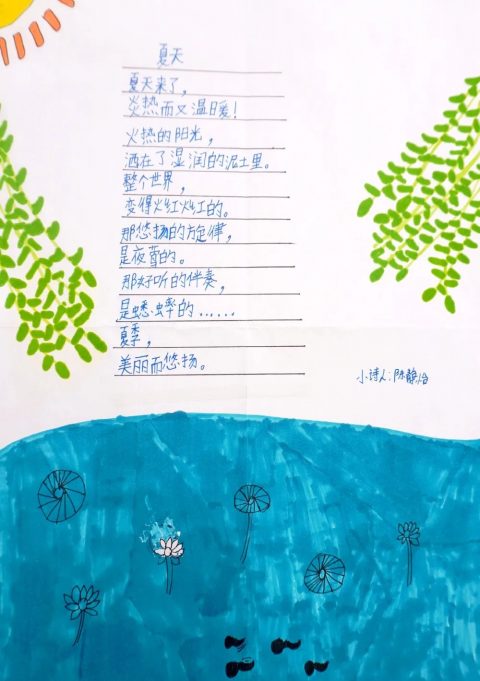 夏天
夏天来了，
炎热而又温暖！
火热的阳光，
洒在了湿润的泥土里。
整个世界，
变得火红火红的。
那悠扬的旋律，
是夜莺的。
那好听的伴奏，
是蟋蟀的……
夏季，
美丽而悠扬。
小诗人：陈静怡